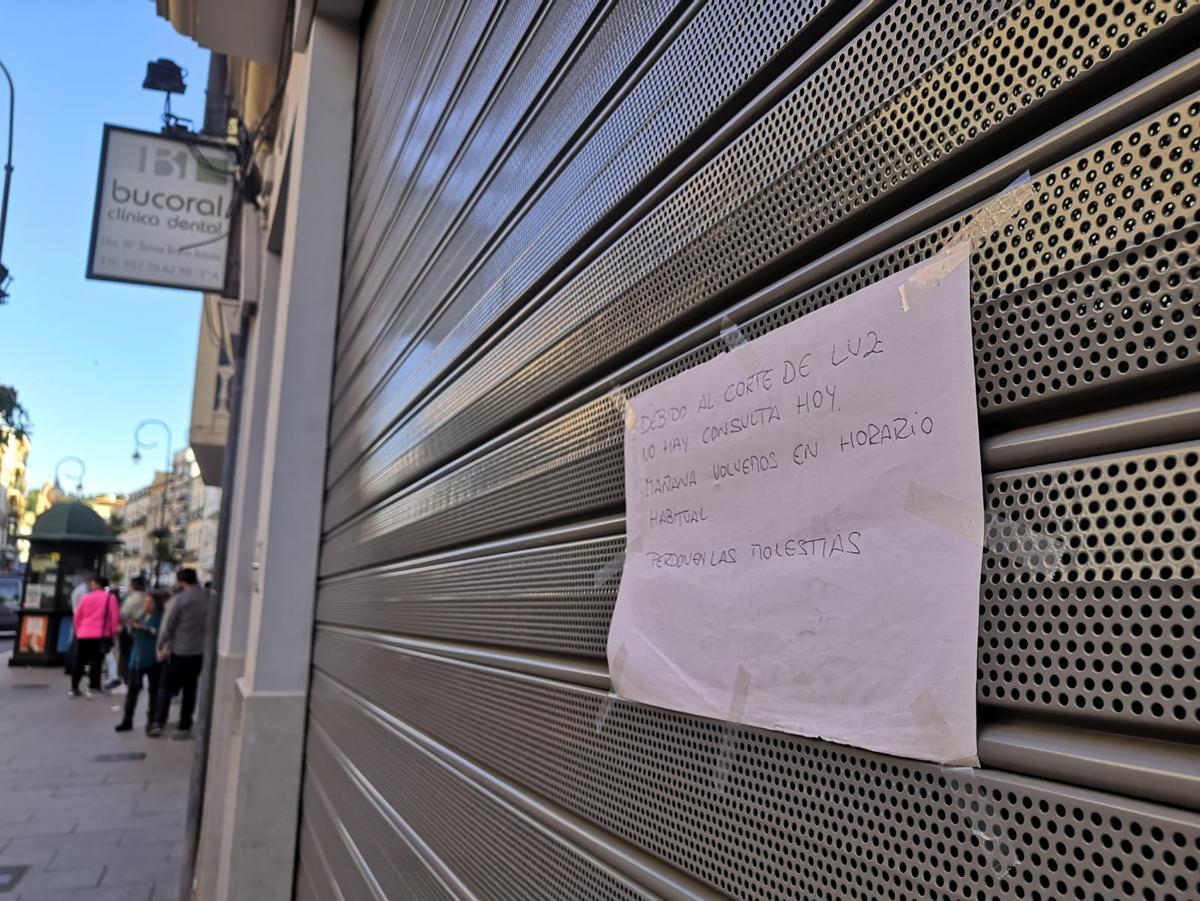 bucoral
clínica dental
DEBIDO AL CORTE DE LUZ
NO HAY CONSULTA HOY.
MAÑANA VOLVEMOS EN HORARIO
HABITUAL.
PERDONEN LAS MOLESTIAS